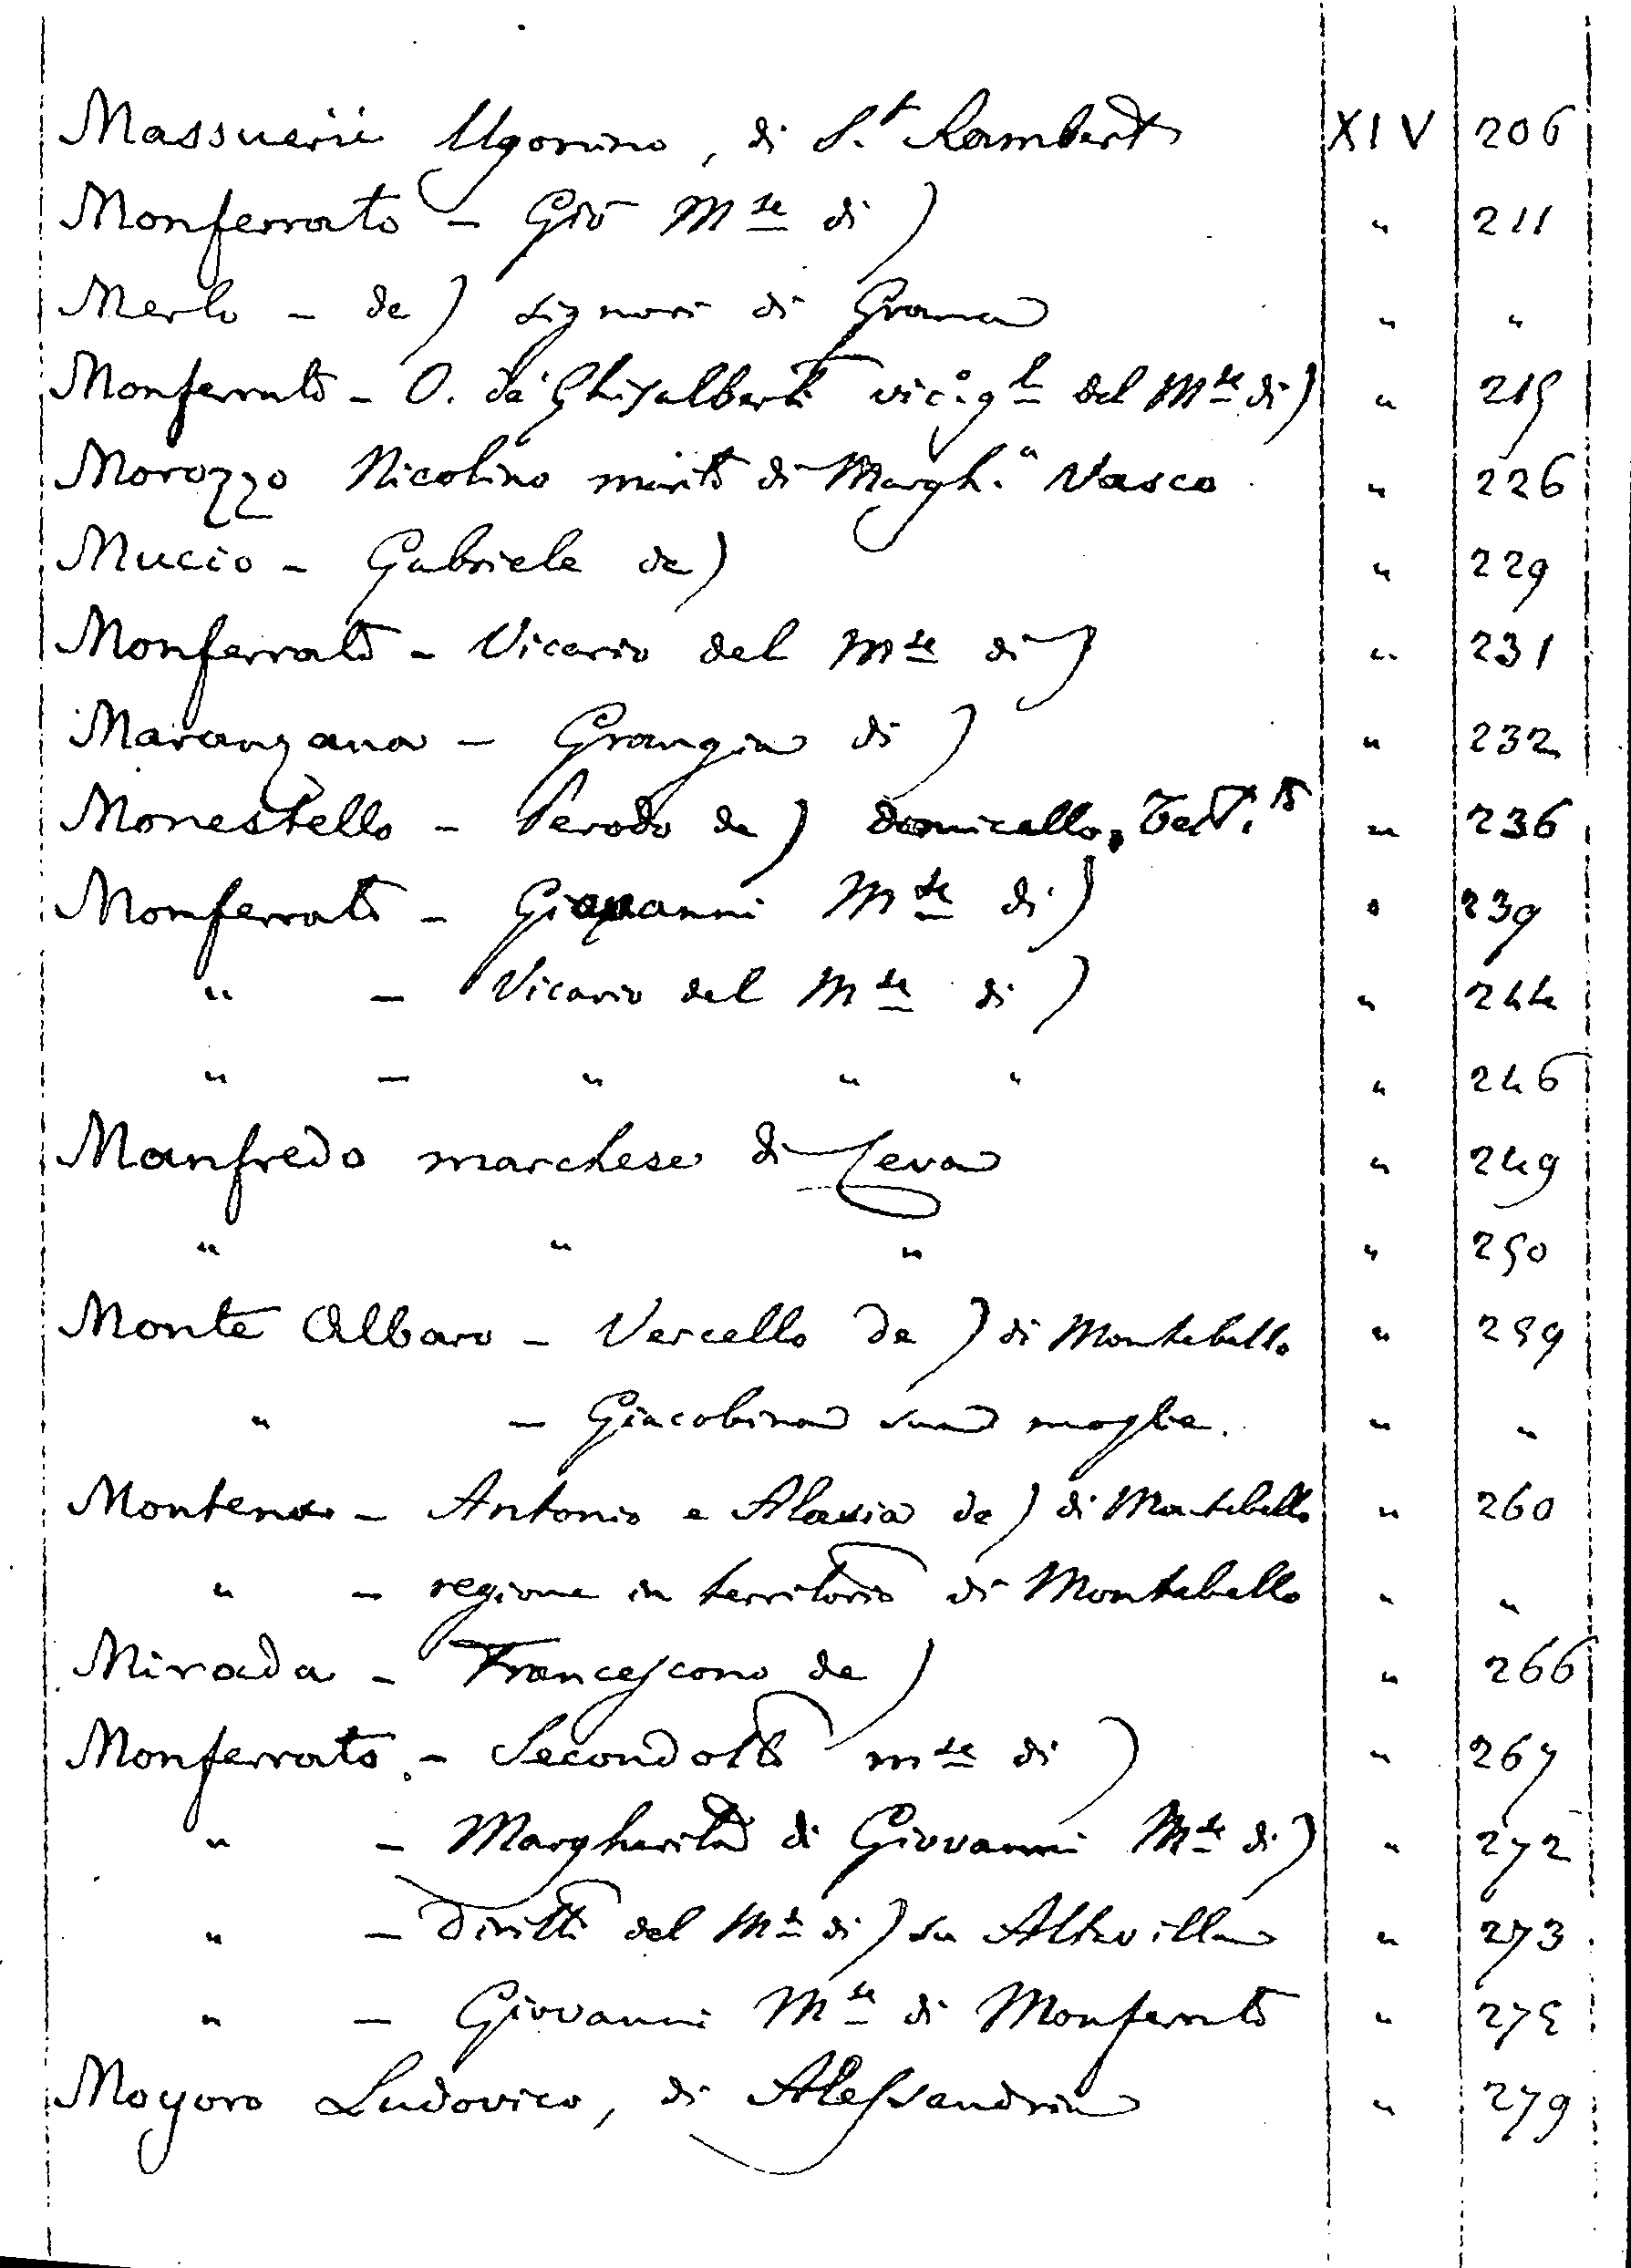 Massuerii Ugonino, di S.t Rambert XIV 206
Monferrato - Gio Mse di) " 211
Merlo - de) signori di Grana " "
Monferrato - O. de Ghisalberti vic.o gle del Mse di) " 215
Morozzo Nicolino marito di Margh.a Vasco " 226
Mucio - Gabriele de) " 229
Monferrato - Vicario del Mse di) " 231
Maranzana - Grangia di) " 232
Monestello - Perodo de) domicello, Test.to " 236
Monferrato - Giovanni Mse di) " 239
" - Vicario del Mse di) " 244
" - " " " " 246
Manfredo marchese di Ceva " 249
" " " " 250
Monte Albaro - Vercello de) di Montebello " 259
" - Giacobina sua moglie. " "
Montenaro - Antonio e Alasia de) di Montebello " 260
" - regione in territorio di Montebello " "
Mirada - Francescono de) " 266
Monferrato - Secondotto mse di) " 267
" - Margherita di Giovanni Mse di) " 272
" - Diritti del Mse di) su Altavilla " 273
" - Giovanni Mse di Monferrato " 275
Moyoro Ludovico, di Alessandria " 279